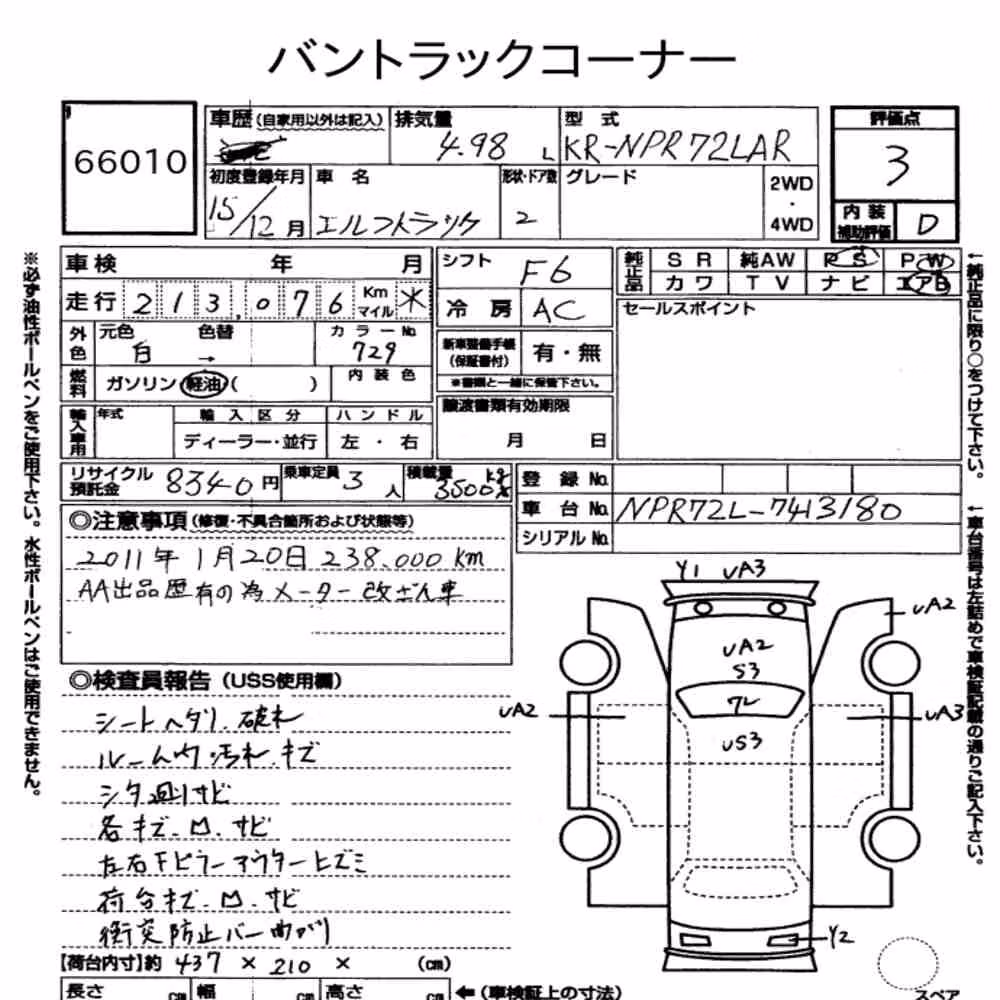 バントラックコーナー
66010
車歴 (自家用以外は記入) 排気量 4.98 L 型式 KR-NPR72LAR
評価点 3
内装補助評価 D
初度登録年月 15/12月 車名 エルフトラック 形状・ドア数 2 グレード 2WD・4WD
※必ず油性ボールペンをご使用下さい。水性ボールペンはご使用できません。
車検 年 月
走行 213,076 Km マイル ※
外色 元色 白 色替 → カラーNo. 729
燃料 ガソリン 軽油 ( ) 内装色
輸入車用 年式 輸入区分 ディーラー・並行 ハンドル 左・右
シフト F6
冷房 AC
新車整備手帳(保証書付) 有・無
※書類と一緒に保管下さい。
譲渡書類有効期限
月 日
純正品 SR 純AW PS PW
カワ TV ナビ エアB
セールスポイント
←純正品に限り○をつけて下さい。
リサイクル預託金 8340円 乗車定員 3人 積載量 3500 kg
登録No.
車台No. NPR72L-7413180
シリアルNo.
←車台番号は左詰めで車検証記載の通りご記入下さい。
◎注意事項(修復・不具合箇所および状態等)
2011年1月20日 238.000km
AA出品歴有の為メーター改ざん車
◎検査員報告(USS使用欄)
シートヘタリ、破れ
ルーム内汚れ、キズ
シタ廻リサビ
各キズ、凹、サビ
左右FピラーアウターヒズミI
荷台キズ、凹、サビ
衝突防止バー曲がり
【荷台内寸】約 437 × 210 × (cm)
長さ cm 幅 cm 高さ cm ←(車検証上の寸法)
Y1 UA3
UA2
UA2
S3
ワレ
UA2
UA3
US3
Y2
スペア